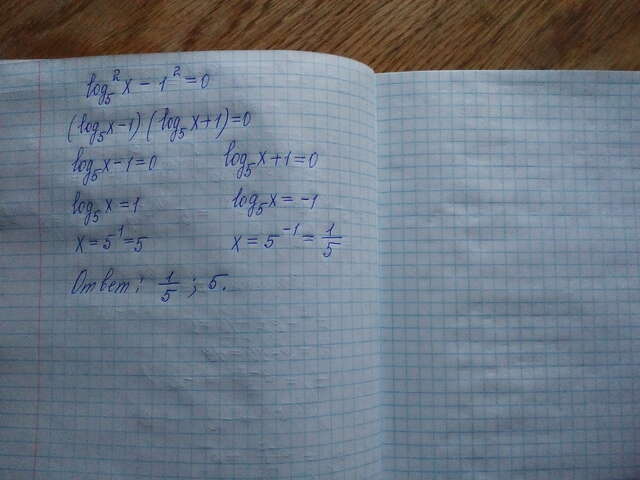 log₅²x − 1² = 0
(log₅x−1) (log₅x+1)=0
log₅x−1=0 log₅x+1=0
log₅x=1 log₅x=−1
x=5¹=5 x=5⁻¹=1/5
Ответ: 1/5 ; 5.